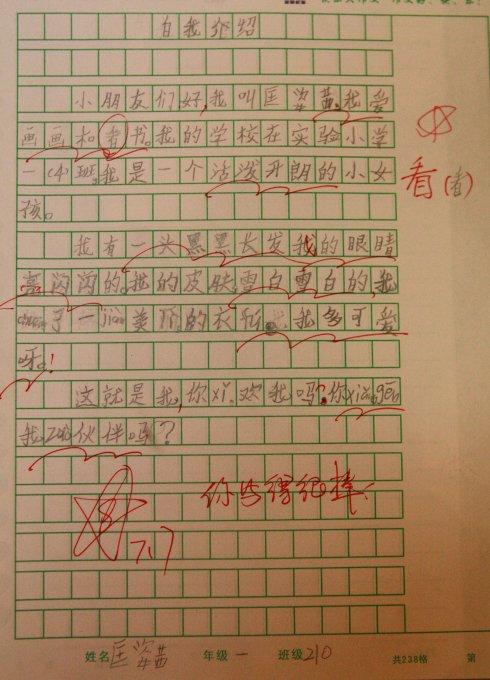 自我介绍
小朋友们好,我叫匡姿茜,我爱
画画和看书。我的学校在实验小学
看(看)
一(4)班,我是一个活泼开朗的小女
孩。
我有一头黑黑长发,我的眼睛
亮闪闪的,我的皮肤雪白雪白的,我
了一jian美丽的衣我多可爱
呀!
这就是我,你xi欢我吗?你xiang gen
我zuo伙伴吗?
你写得很棒!
7.17
姓名 匡姿茜 年级 一 班级 210 共238格 第